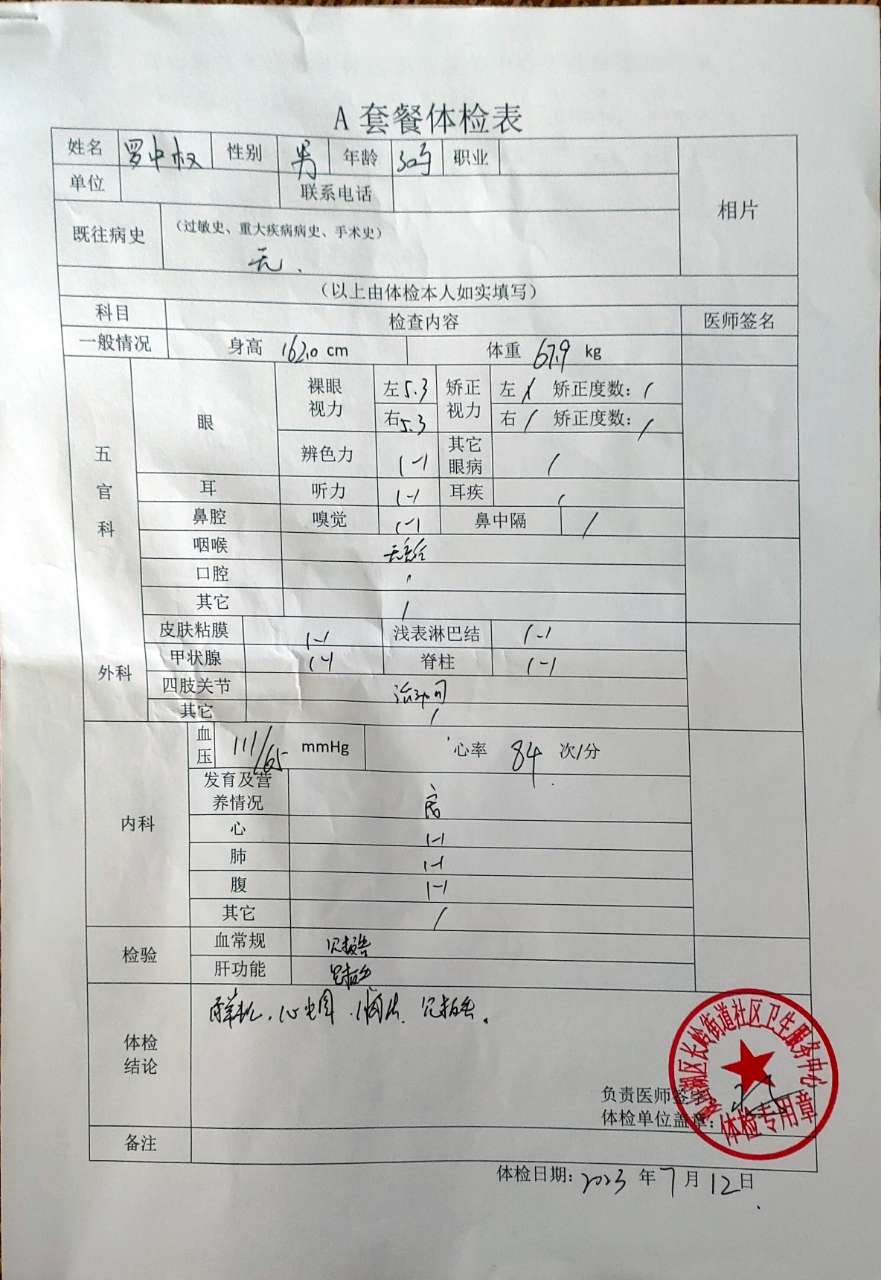 A 套餐体检表
姓名 罗中权 性别 男 年龄 职业
单位 联系电话
相片
既往病史 (过敏史、重大疾病病史、手术史)
无.
(以上由体检本人如实填写)
科目 检查内容 医师签名
一般情况 身高 162.0 cm 体重 67.9 kg
五官科
眼 裸眼视力 左 5.3 矫正视力 左 / 矫正度数: /
右 5.3 右 / 矫正度数: /
辨色力 (-) 其它眼病 /
耳 听力 (-) 耳疾 /
鼻腔 嗅觉 (-) 鼻中隔 /
咽喉
口腔 /
其它 /
外科
皮肤粘膜 (-) 浅表淋巴结 (-)
甲状腺 (-) 脊柱 (-)
四肢关节
其它 /
内科
血压 111/65 mmHg 心率 84 次/分
发育及营养情况 良
心 (-)
肺 (-)
腹 (-)
其它 /
检验 血常规 见报告
肝功能 见报告
体检结论 心电图 见报告。
负责医师签字
体检单位盖章:
湖区长岭街道社区卫生服务中心
体检专用章
备注
体检日期: 2023 年 7 月 12 日